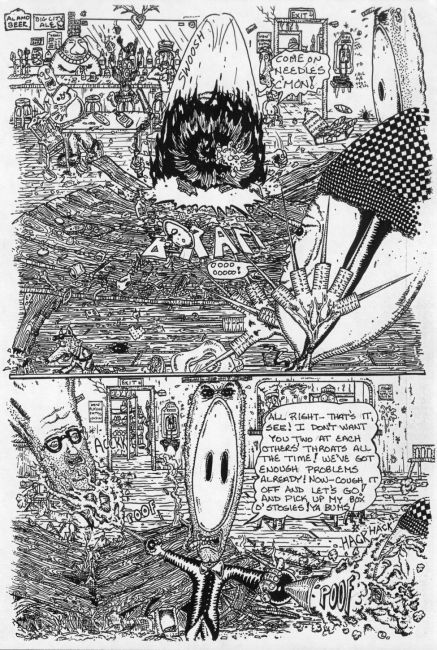 ALAMO
BEER
BIG CITY
ALES
EXIT
SWOOSH
COME ON
NEEDLES
C'MON!
OOOO
OOOOO!
EXIT
ALL RIGHT-THAT'S IT,
SEE! I DON'T WANT
YOU TWO AT EACH
OTHERS' THROATS ALL
THE TIME! WE'VE GOT
ENOUGH PROBLEMS
ALREADY! NOW-COUGH IT
OFF AND LET'S GO!
AND PICK UP MY BOX
O' STOGIES! YA BUMS
POOF
HACK HACK
POOF